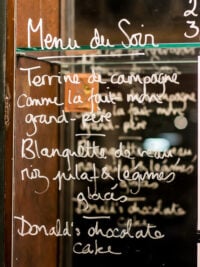 2
3
Menu du Soir
Terrine de campagne
Comme la fait mon
grand-père
Blanquette de veau,
riz pilaf & légumes
glacés
Donald's chocolate
cake